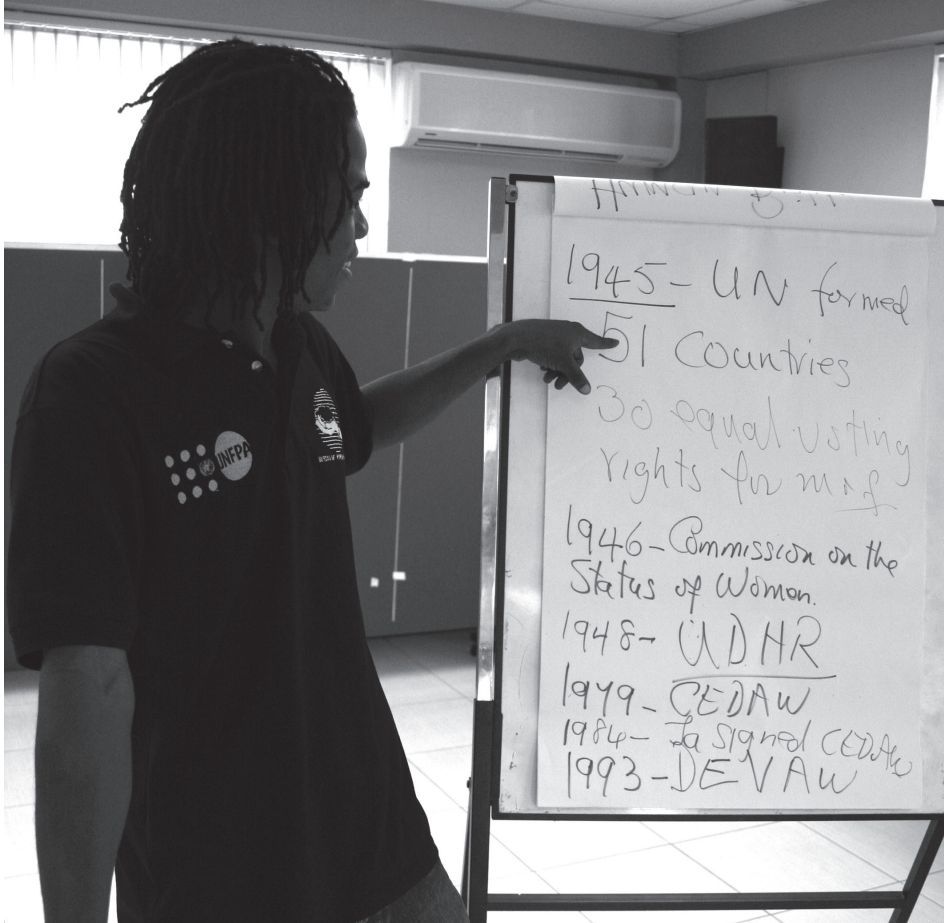 1945 - UN formed
51 Countries
30 equal voting
rights for m & f
1946 - Commission on the
Status of Women.
1948 - UDHR
1979 - CEDAW
1984 - Ja signed CEDAW
1993 - DEVAW
UNFPA